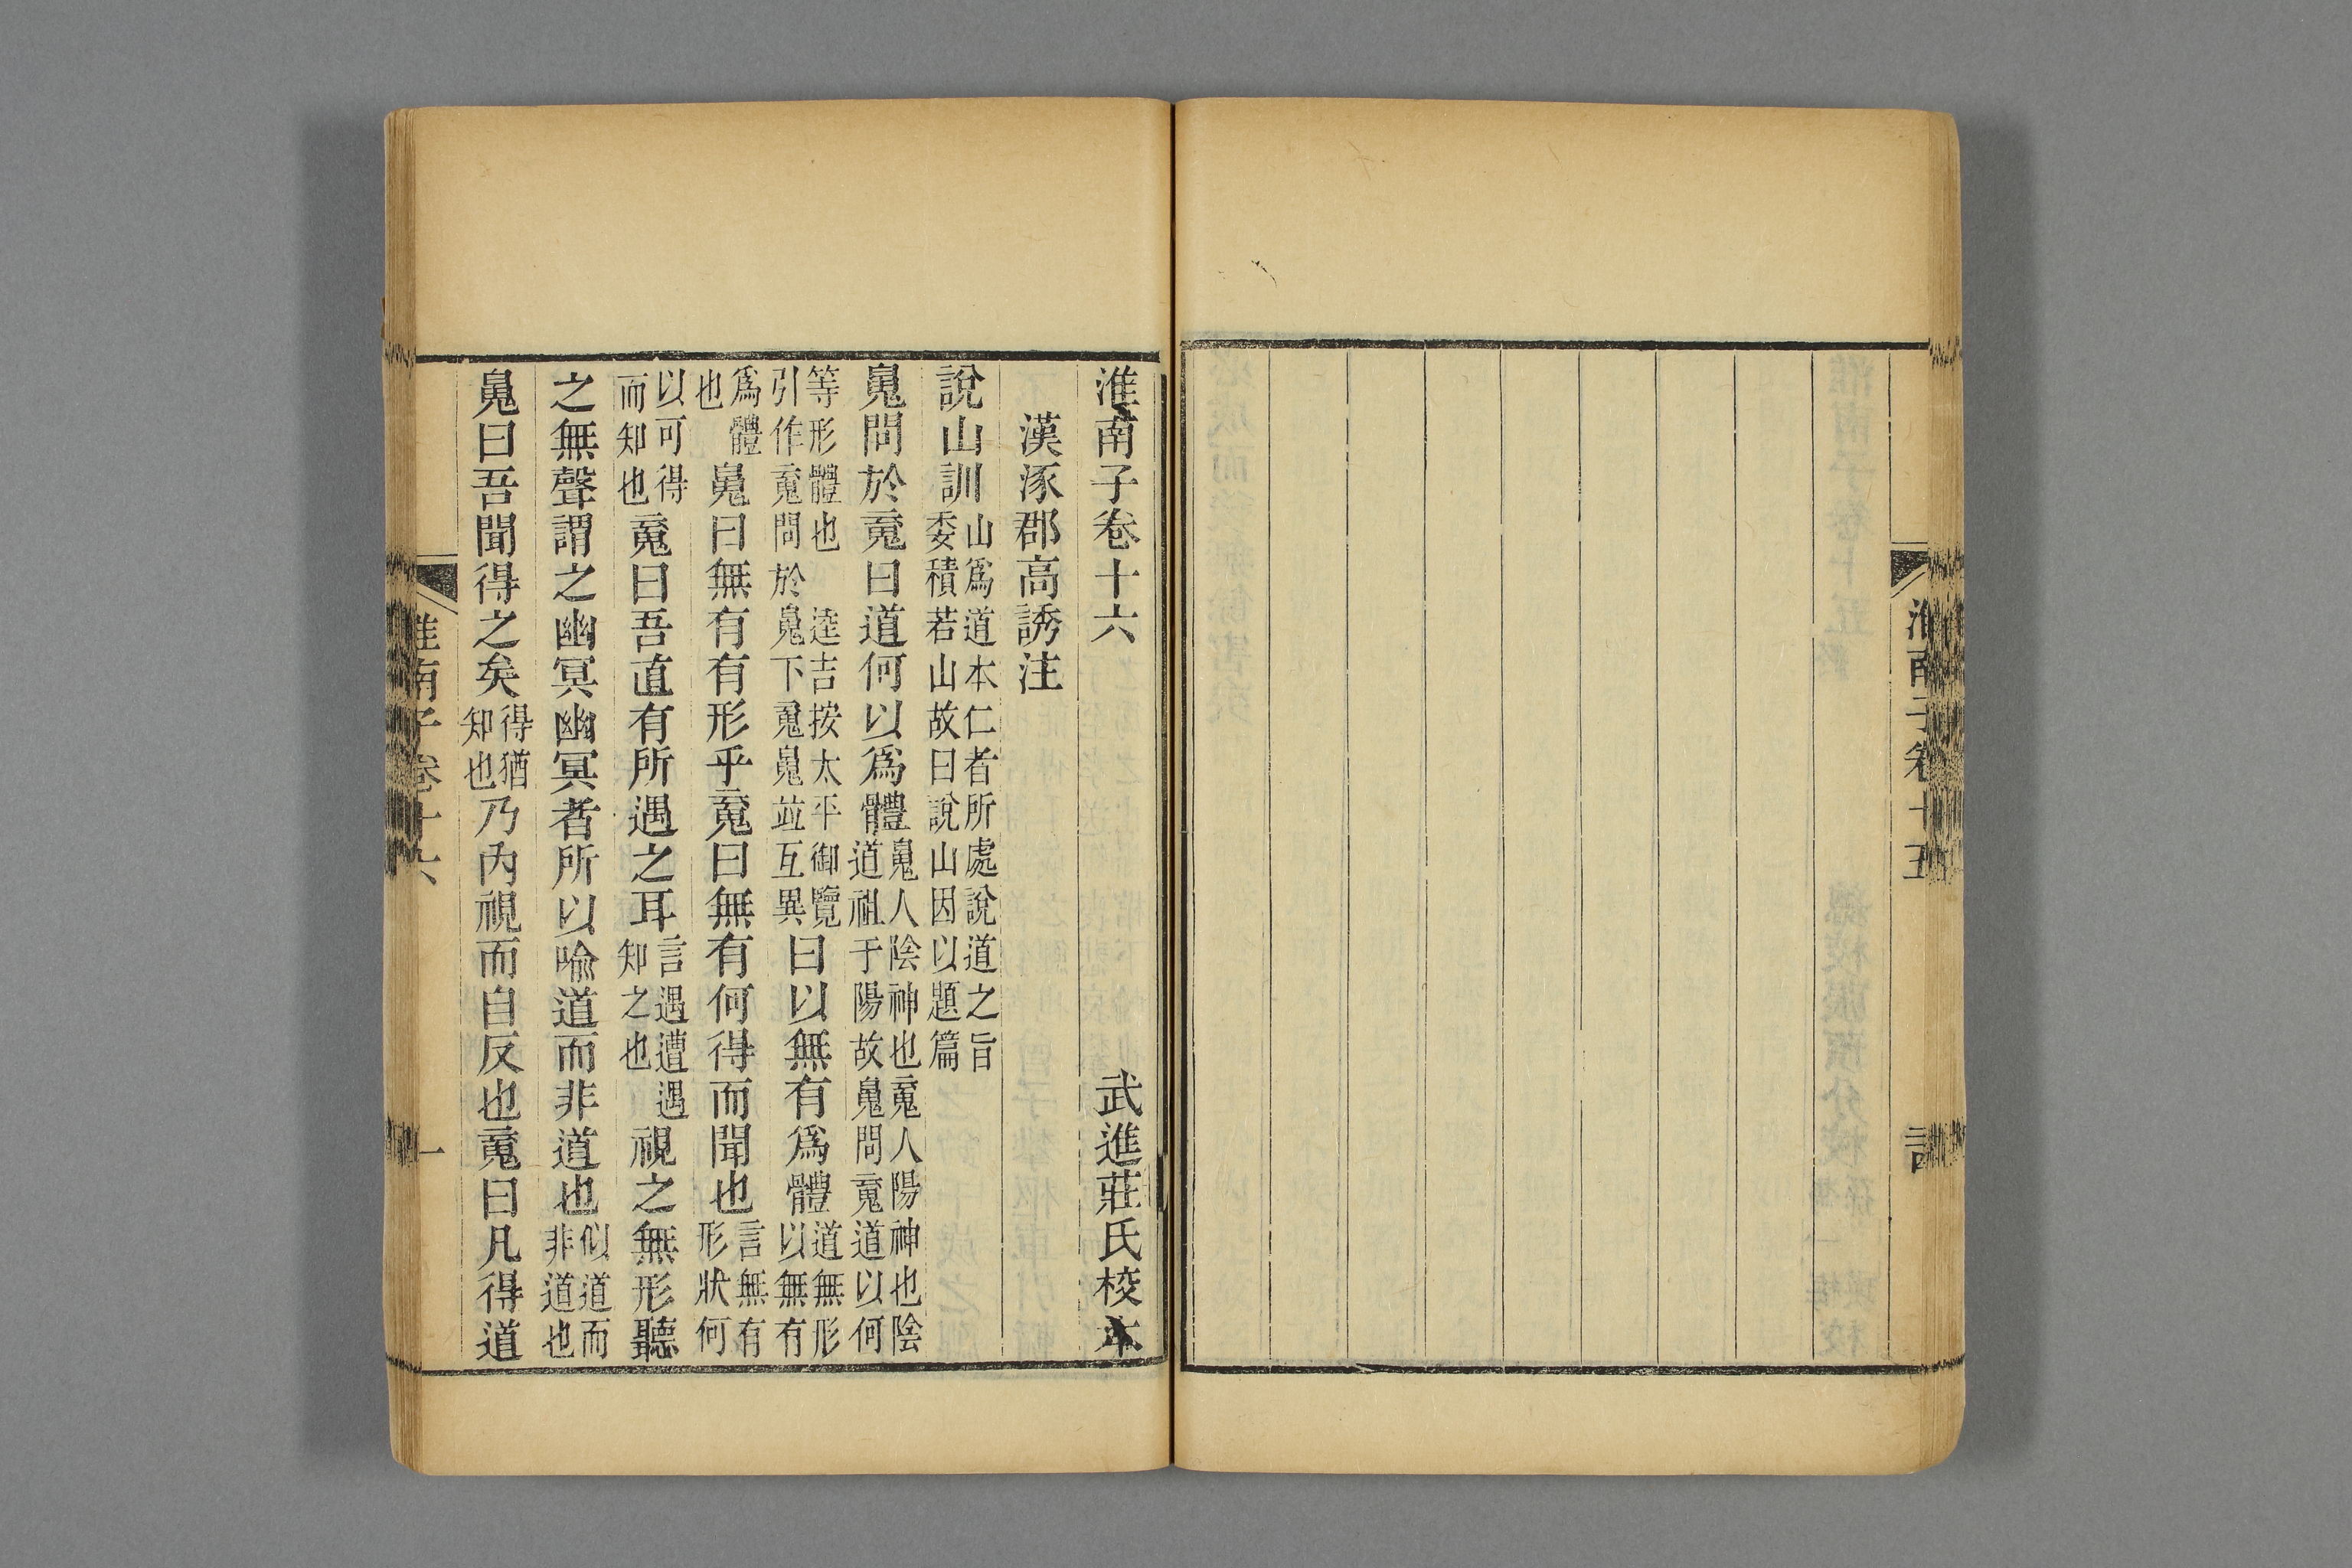 淮南子卷十五
淮南子卷十六 武進莊氏校本
漢涿郡高誘注
說山訓 山爲道本仁者所處說道之旨委積若山故曰說山因以題篇
魄問於䰟曰道何以爲體 魄人陰神也䰟人陽神也陰道祖于陽故魄問䰟道以何
等形體也 逵吉按太平御覽引作䰟問於魄下䰟魄竝互異 曰以無有爲體 道無形以無有
爲體也 魄曰無有有形乎䰟曰無有何得而聞也 言無有形狀何
以可得而知也 䰟曰吾直有所遇之耳 言遇遭遇知之也 視之無形聽
之無聲謂之幽冥幽冥者所以喻道而非道也 似道而非道也
魄曰吾聞得之矣 得猶知也 乃內視而自反也䰟曰凡得道
淮南子卷十六 一